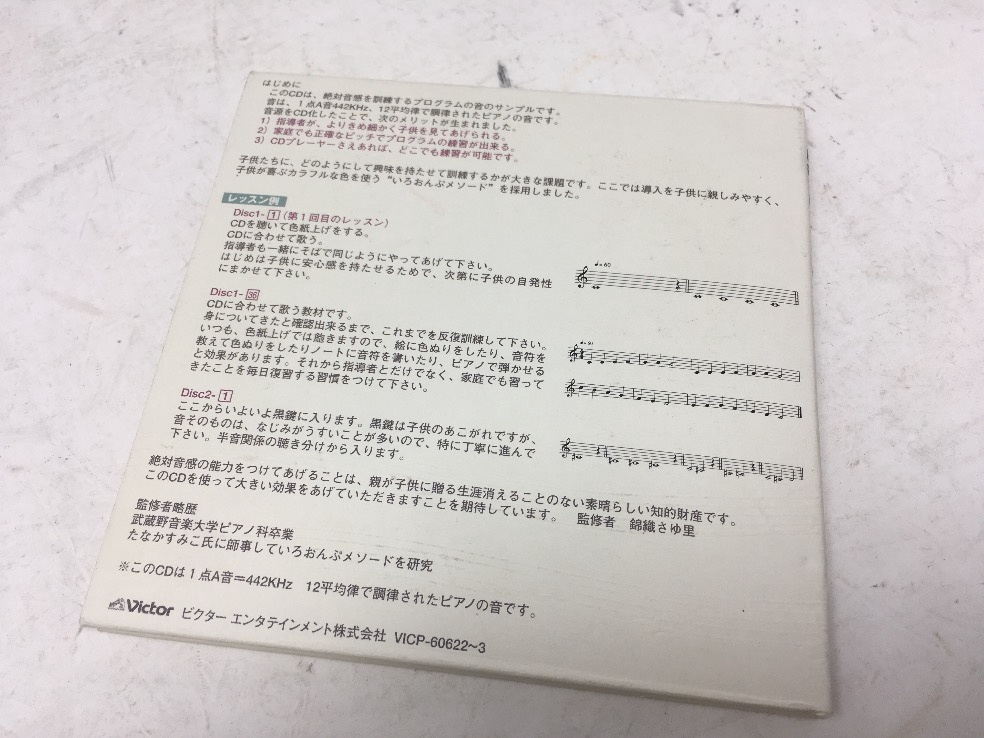 はじめに
このCDは、絶対音感を訓練するプログラムの音のサンプルです。
音は、1点A音442KHz、12平均律で調律されたピアノの音です。
音源をCD化したことで、次のメリットが生まれました。
1）指導者が、よりきめ細かく子供を見てあげられる。
2）家庭でも正確なピッチでプログラムの練習が出来る。
3）CDプレーヤーさえあれば、どこでも練習が可能です。
子供たちに、どのようにして興味を持たせて訓練するかが大きな課題です。ここでは導入を子供に親しみやすく、
子供が喜ぶカラフルな色を使う"いろおんぷメソード"を採用しました。
レッスン例
Disc1-1（第1回目のレッスン）
CDを聴いて色紙上げをする。
CDに合わせて歌う。
指導者も一緒にそばで同じようにやってあげて下さい。
はじめは子供に安心感を持たせるためで、次第に子供の自発性
にまかせて下さい。
♩=60
Disc1-36
CDに合わせて歌う教材です。
身についてきたと確認出来るまで、これまでを反復訓練して下さい。
いつも、色紙上げでは飽きますので、絵に色ぬりをしたり、音符を
教えて色ぬりをしたりノートに音符を書いたり、ピアノで弾かせる
と効果があります。それから指導者とだけでなく、家庭でも習って
きたことを毎日復習する習慣をつけて下さい。
Disc2-1
ここからいよいよ黒鍵に入ります。黒鍵は子供のあこがれですが、
音そのものは、なじみがうすいことが多いので、特に丁寧に進んで
下さい。半音関係の聴き分けから入ります。
絶対音感の能力をつけてあげることは、親が子供に贈る生涯消えることのない素晴らしい知的財産です。
このCDを使って大きい効果をあげていただきますことを期待しています。 監修者 錦織さゆ里
監修者略歴
武蔵野音楽大学ピアノ科卒業
たなかすみこ氏に師事していろおんぷメソードを研究
※このCDは1点A音＝442KHz 12平均律で調律されたピアノの音です。
Victor ビクター エンタテインメント株式会社 VICP-60622〜3